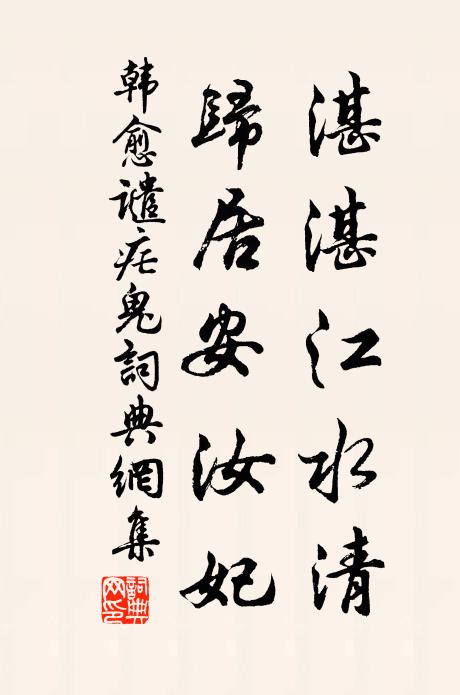 湛湛江水清
歸居安汝妃
韩愈譴疟鬼詞典網集
詞典網印